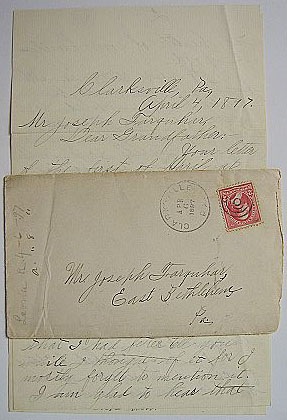 Clarksville, Pa,
April 4, 1897.
Mr Joseph Farquhar,
Dear Grandfather,
Your letter
of the first of April
CLARKSVILLE
APR
1897
PA.
Mr. Joseph Farquhar,
East Bethlehem,
Pa.
that I had
while I thought of it for I
mostly forget to mention it.
I am glad to hear that